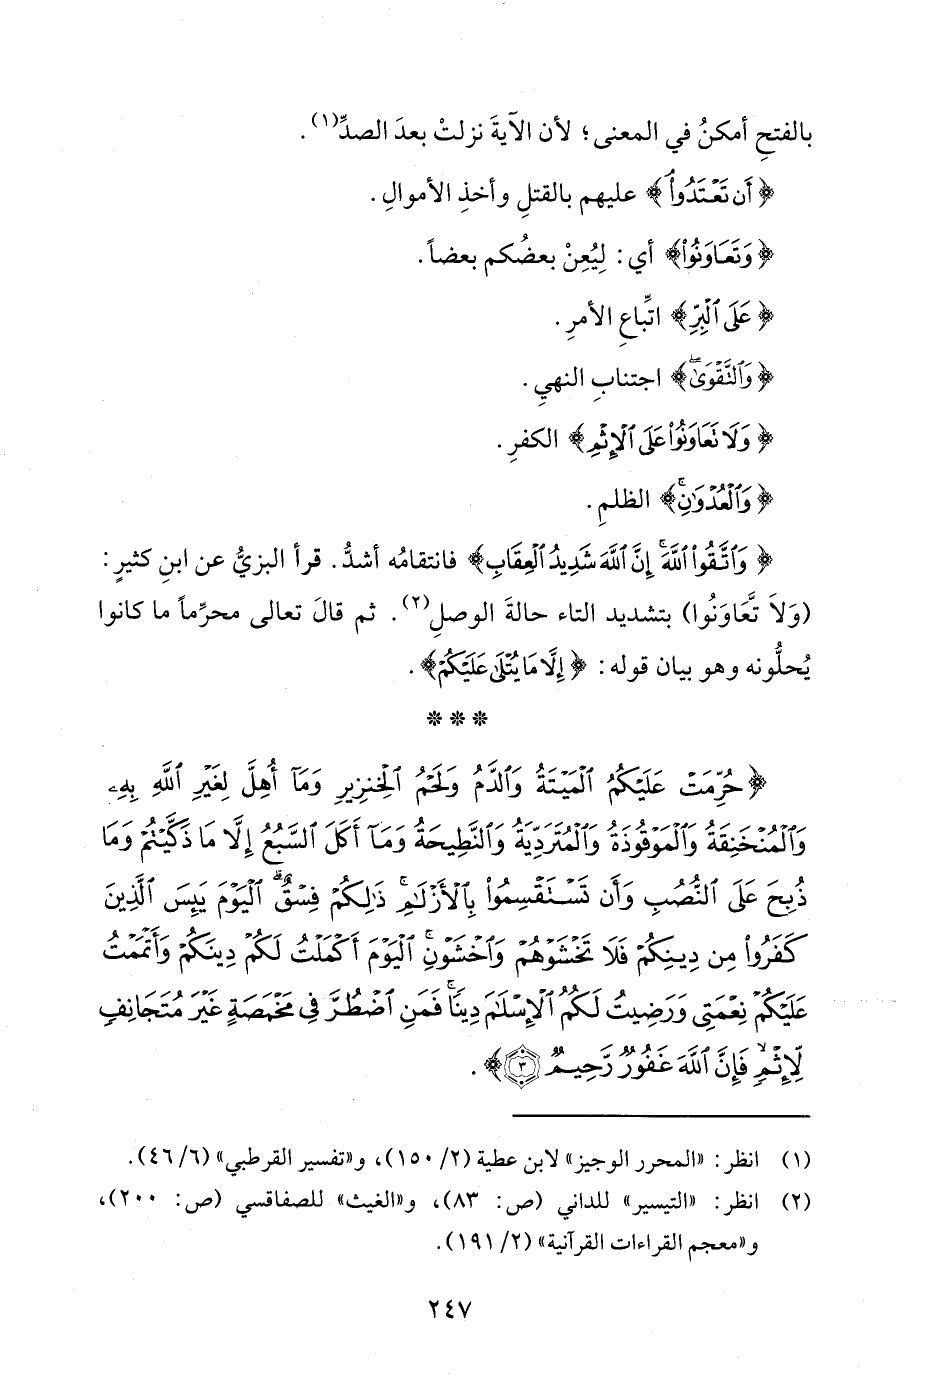 بالفتحِ أمكنُ في المعنى؛ لأن الآيةَ نزلتْ بعدَ الصدِّ(١).
﴿أَن تَعْتَدُواْ﴾ عليهم بالقتلِ وأخذِ الأموالِ.
﴿وَتَعَاوَنُواْ﴾ أي: لِيُعِنْ بعضُكم بعضاً.
﴿عَلَى ٱلْبِرِّ﴾ اتِّباعِ الأمرِ.
﴿وَٱلتَّقْوَىٰۖ﴾ اجتنابِ النهيِ.
﴿وَلَا تَعَاوَنُواْ عَلَى ٱلْإِثْمِ﴾ الكفرِ.
﴿وَٱلْعُدْوَٰنِۚ﴾ الظلمِ.
﴿وَٱتَّقُواْ ٱللَّهَۚ إِنَّ ٱللَّهَ شَدِيدُ ٱلْعِقَابِ﴾ فانتقامُه أشدُّ. قرأ البزيُّ عن ابنِ كثيرٍ:
(وَلاَ تَّعَاوَنُوا) بتشديد التاء حالةَ الوصلِ(٢). ثم قالَ تعالى محرِّماً ما كانوا
يُحلُّونه وهو بيان قوله: ﴿إِلَّا مَا يُتْلَىٰ عَلَيْكُمْ﴾.
* * *
﴿حُرِّمَتْ عَلَيْكُمُ ٱلْمَيْتَةُ وَٱلدَّمُ وَلَحْمُ ٱلْخِنزِيرِ وَمَآ أُهِلَّ لِغَيْرِ ٱللَّهِ بِهِۦ
وَٱلْمُنْخَنِقَةُ وَٱلْمَوْقُوذَةُ وَٱلْمُتَرَدِّيَةُ وَٱلنَّطِيحَةُ وَمَآ أَكَلَ ٱلسَّبُعُ إِلَّا مَا ذَكَّيْتُمْ وَمَا
ذُبِحَ عَلَى ٱلنُّصُبِ وَأَن تَسْتَقْسِمُواْ بِٱلْأَزْلَٰمِۚ ذَٰلِكُمْ فِسْقٌۗ ٱلْيَوْمَ يَئِسَ ٱلَّذِينَ
كَفَرُواْ مِن دِينِكُمْ فَلَا تَخْشَوْهُمْ وَٱخْشَوْنِۚ ٱلْيَوْمَ أَكْمَلْتُ لَكُمْ دِينَكُمْ وَأَتْمَمْتُ
عَلَيْكُمْ نِعْمَتِى وَرَضِيتُ لَكُمُ ٱلْإِسْلَٰمَ دِينًاۚ فَمَنِ ٱضْطُرَّ فِى مَخْمَصَةٍ غَيْرَ مُتَجَانِفٍ
لِّإِثْمٍۙ فَإِنَّ ٱللَّهَ غَفُورٌ رَّحِيمٌ ٣﴾.
(١) انظر: «المحرر الوجيز» لابن عطية (٢/ ١٥٠)، و«تفسير القرطبي» (٦/ ٤٦).
(٢) انظر: «التيسير» للداني (ص: ٨٣)، و«الغيث» للصفاقسي (ص: ٢٠٠)،
و«معجم القراءات القرآنية» (٢/ ١٩١).
٢٤٧